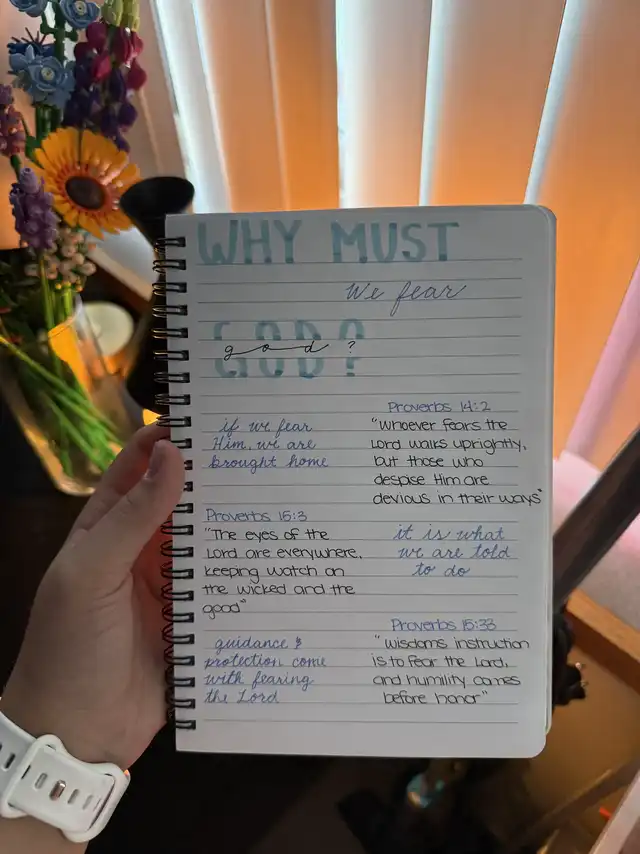 WHY MUST
We fear
GOD?
god?
Proverbs 14:2
"Whoever fears the
Lord walks uprightly,
but those who
despise Him are
devious in their ways"
if we fear
Him, we are
brought home
Proverbs 15:3
"The eyes of the
Lord are everywhere,
keeping watch on
the wicked and the
good"
it is what
we are told
to do
Proverbs 15:33
"wisdoms instruction
is to fear the Lord,
and humility comes
before honor"
guidance &
protection come
with fearing
the Lord